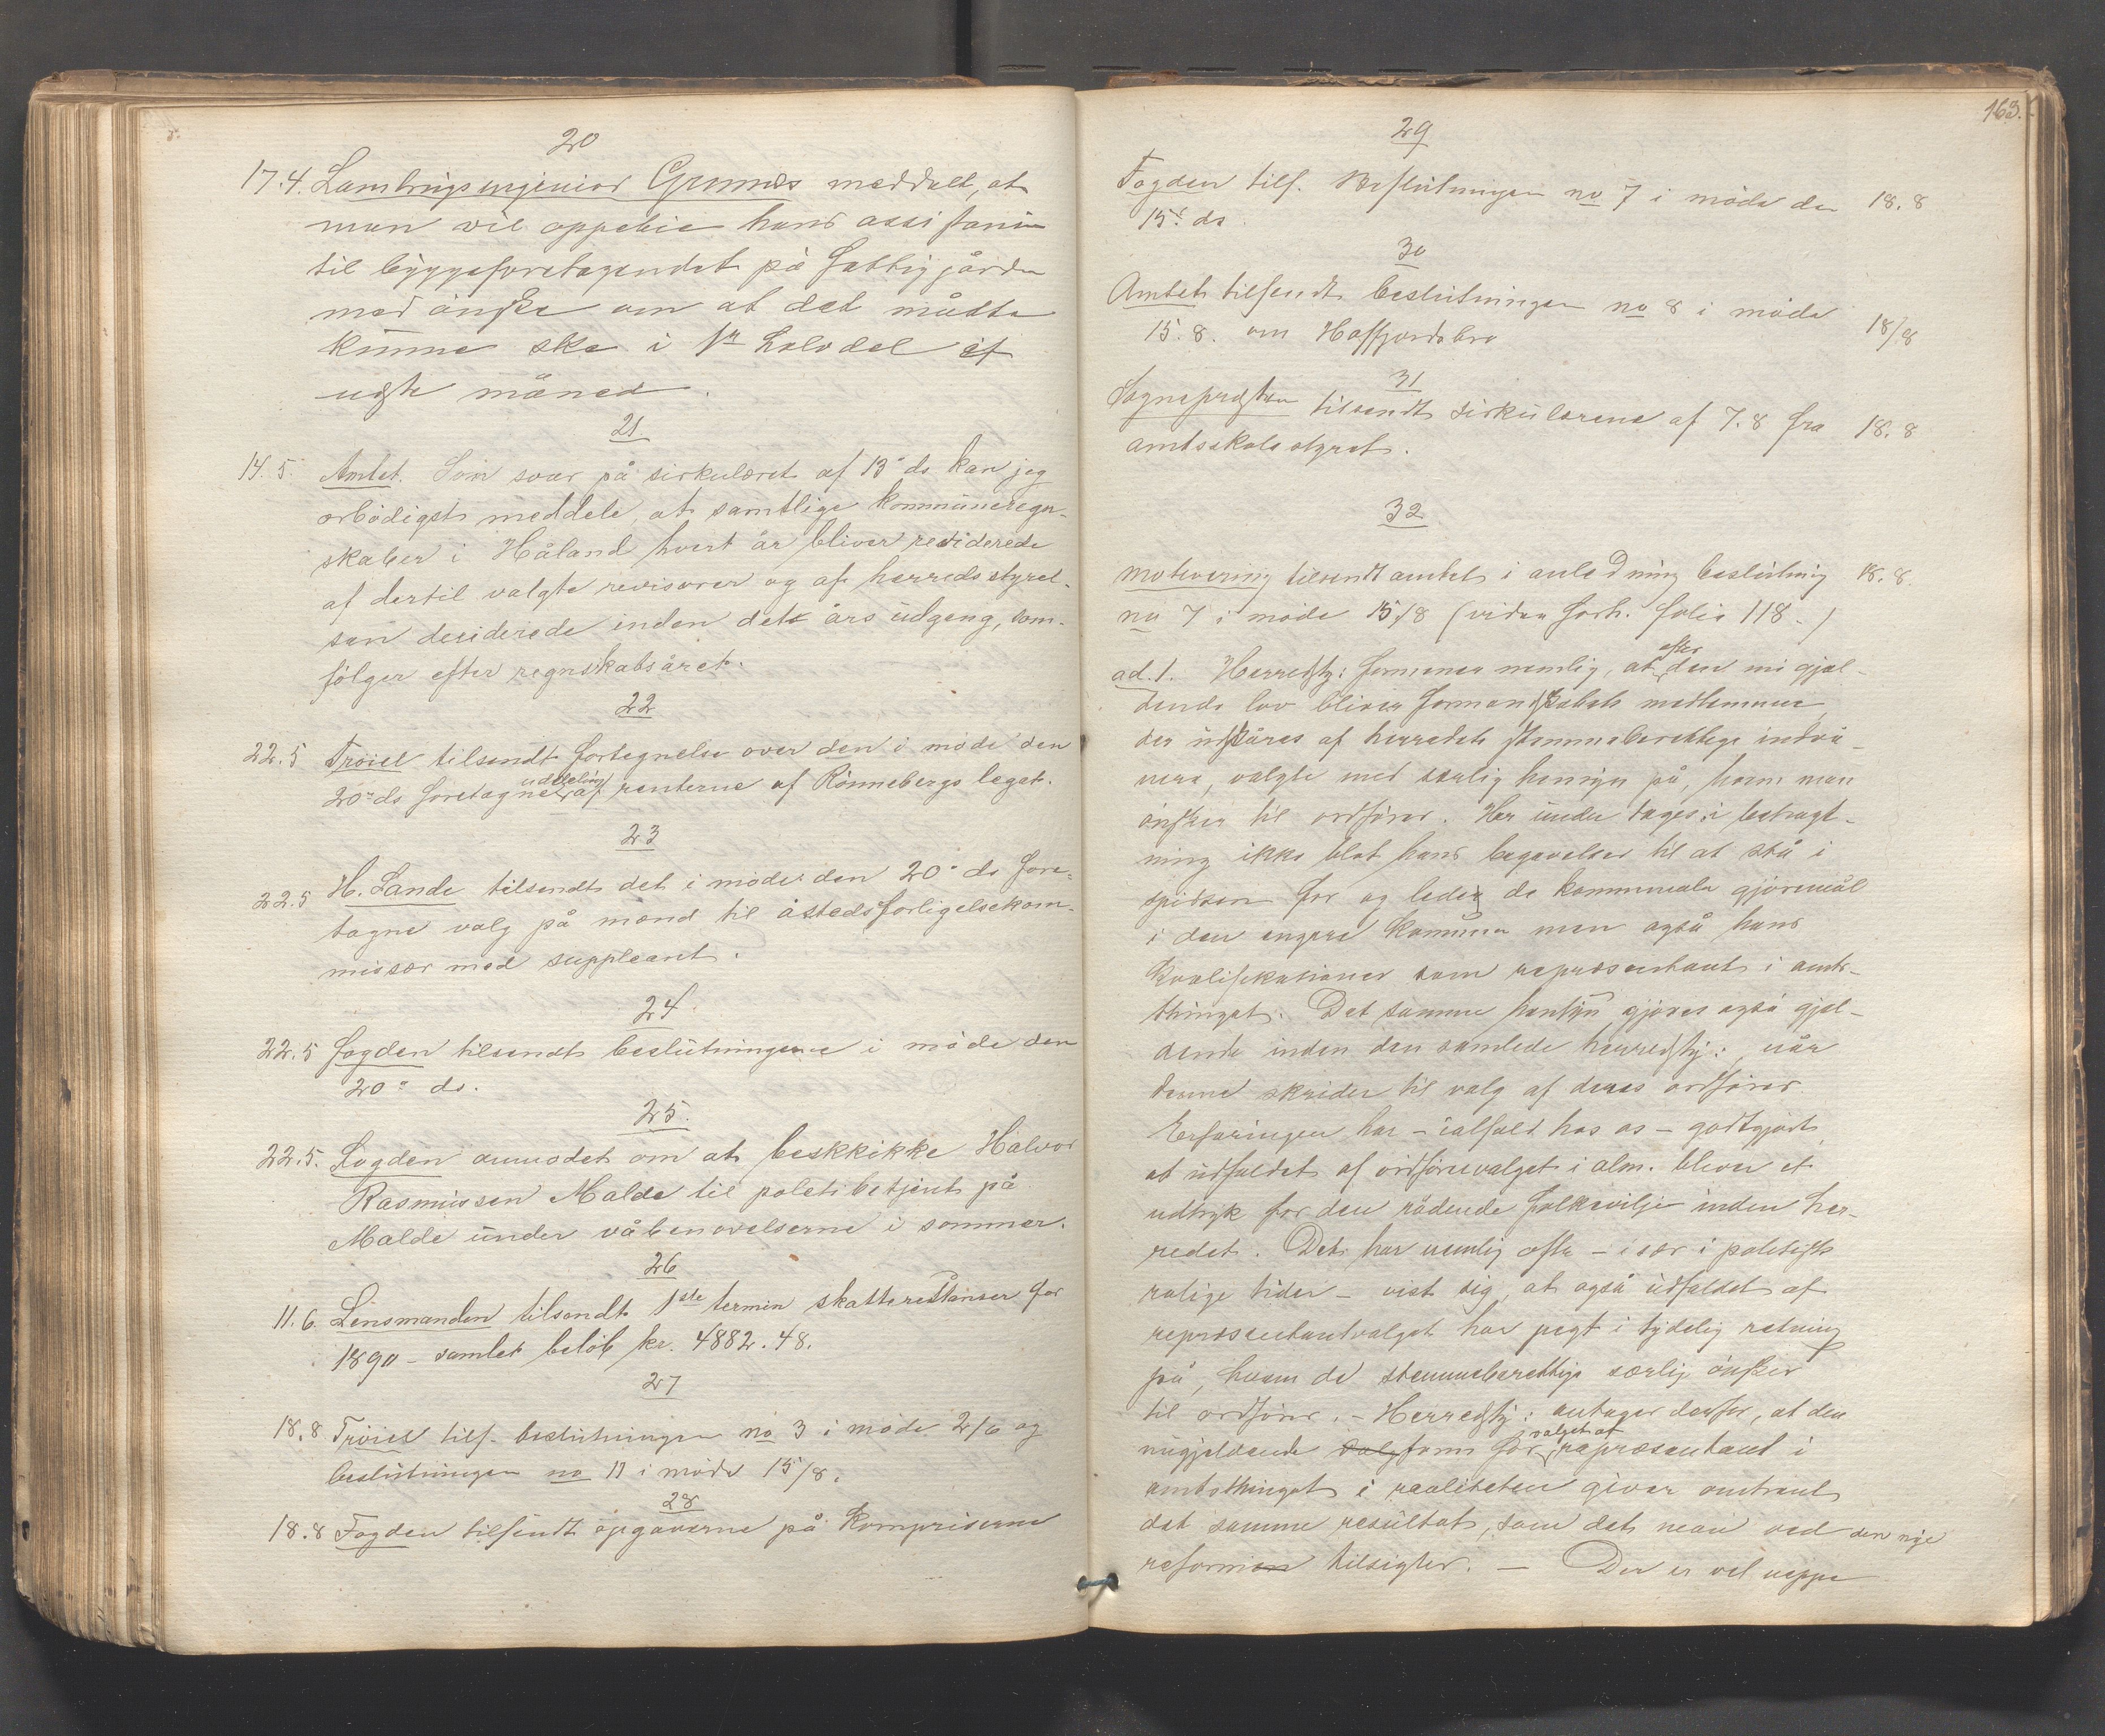 20
17.4. Landbrugsingeniør Grønnæs meddelt, at
man vil oppebie hans assistanse
til byggeforetagendet på fattigjården
med ønske om at det måtte
kunne ske i 1ste halvdel af
næste måned.
21
14.5. Amtet. Som svar på sirkulæret af 13de ds kan jeg
ærbödigst meddele, at samtlige kommuneregn-
skaber i Håland hvert år bliver reviderede
af dertil valgte revisorer og af herredsstyrel-
sen desiderede inden det års udgang, som
fölger efter regnskabsåret.
22
22.5 Tröiel tilsendt fortegnelse over den i möde den
uddeling
20de ds foretagne af renterne af Rönnebergs legat.
23
22.5 H. Lande tilsendt det i möde den 20de ds fore-
tagne valg på mænd til åstedsforligelseskom-
missær med suppleant.
24
22.5 Fogden tilsendt beslutningerne i möde den
20de ds.
25.
22.5. Fogden anmodet om at beskkikke Halvor
Rasmussen Malde til politibetjent på
Malde under våbenøvelserne i sommer.
26
11.6. Lensmanden tilsendt 1ste termin skatterestanser for
1890 – samlet belöb kr. 4882.48.
27
18.8 Tröiel tils. beslutningen no 3 i möde 2/6 og
beslutningen no 11 i möde 15/8.
28
18.8 Fogden tilsendt opgaverne på kornpriserne
163.
29
Fogden tils. Beslutningen no 7 i möde den 18.8
15de ds.
30
Amtet tilsendt beslutningen no 8 i möde
15.8. om Hafsfjordsbro 18/8
31
Sognepræsten tilsendt sirkulærene af 7.8 fra 18.8
amtsskolestyret.
32
Motivering tilsendt amtet i anledning beslutning 18.8.
no 7 i möde 15/8 (viden forh. folio 118.)
efter
ad. 1. Herredsty: formener nemlig, at den nu gjæl-
dende lov bliver formandskabets medlemmer,
der uskåres af herredets stemmeberettige indvå-
nere, valgte med særlig hensyn på, hvem man
önsker til ordförer. Her under tages i betragt-
ning ikke blot hans begavelser til at stå i
spidsen for og lede de kommunale gjöremål
i den engere kommune men også hans
kvalifikationer som repræsentant i amts-
thinget. Det samme hensyn gjöres også gjæl-
dende inden den samlede herredsty:, når
denne skrider til valg af deres ordförer.
Erfaringen har – ialfald hos os – godtgjort,
at udfaldet af ordförervalget i alm. bliver et
udtryk for den rådende folkevilje inden her-
redet. Det har nemlig ofte – især i politisk
rolige tider – vist sig, at også udfaldet af
repræsentantvalget har pegt i tydelig retning
på, hvem de stemmeberettige særlig önsker
til ordförer. – Herredsty: antager derfor, at den
valget af
nugjældende valgform for repræsentant i
amtsthinget i realiteten giver omtrent
det samme resultat, som det man ved den nye
reformen tilsigter. — Der er vel neppe